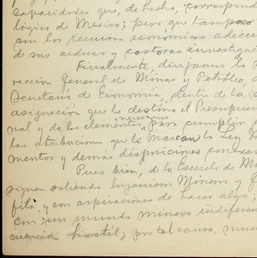 capacidades que, de hecho, correspond
lógica de México; pero que tampoco
con los recursos económicos adecua
de sus arduas y costosas investigaci
Finalmente, dirijamos la
rección General de Minas y Petróleo, a
Secretaría de Economía, dentro de la
asignación que le destina el Presupues
nal y de los elementos para cumplir
las atribuciones que le marcan la Ley
mentos y demás disposiciones conexas
Pues bien, de la Escuela de M
siguen saliendo Ingenieros Mineros y
y con aspiraciones de hacer algo,
con un mundo minero indiferen
hostil; por tal causa, mu